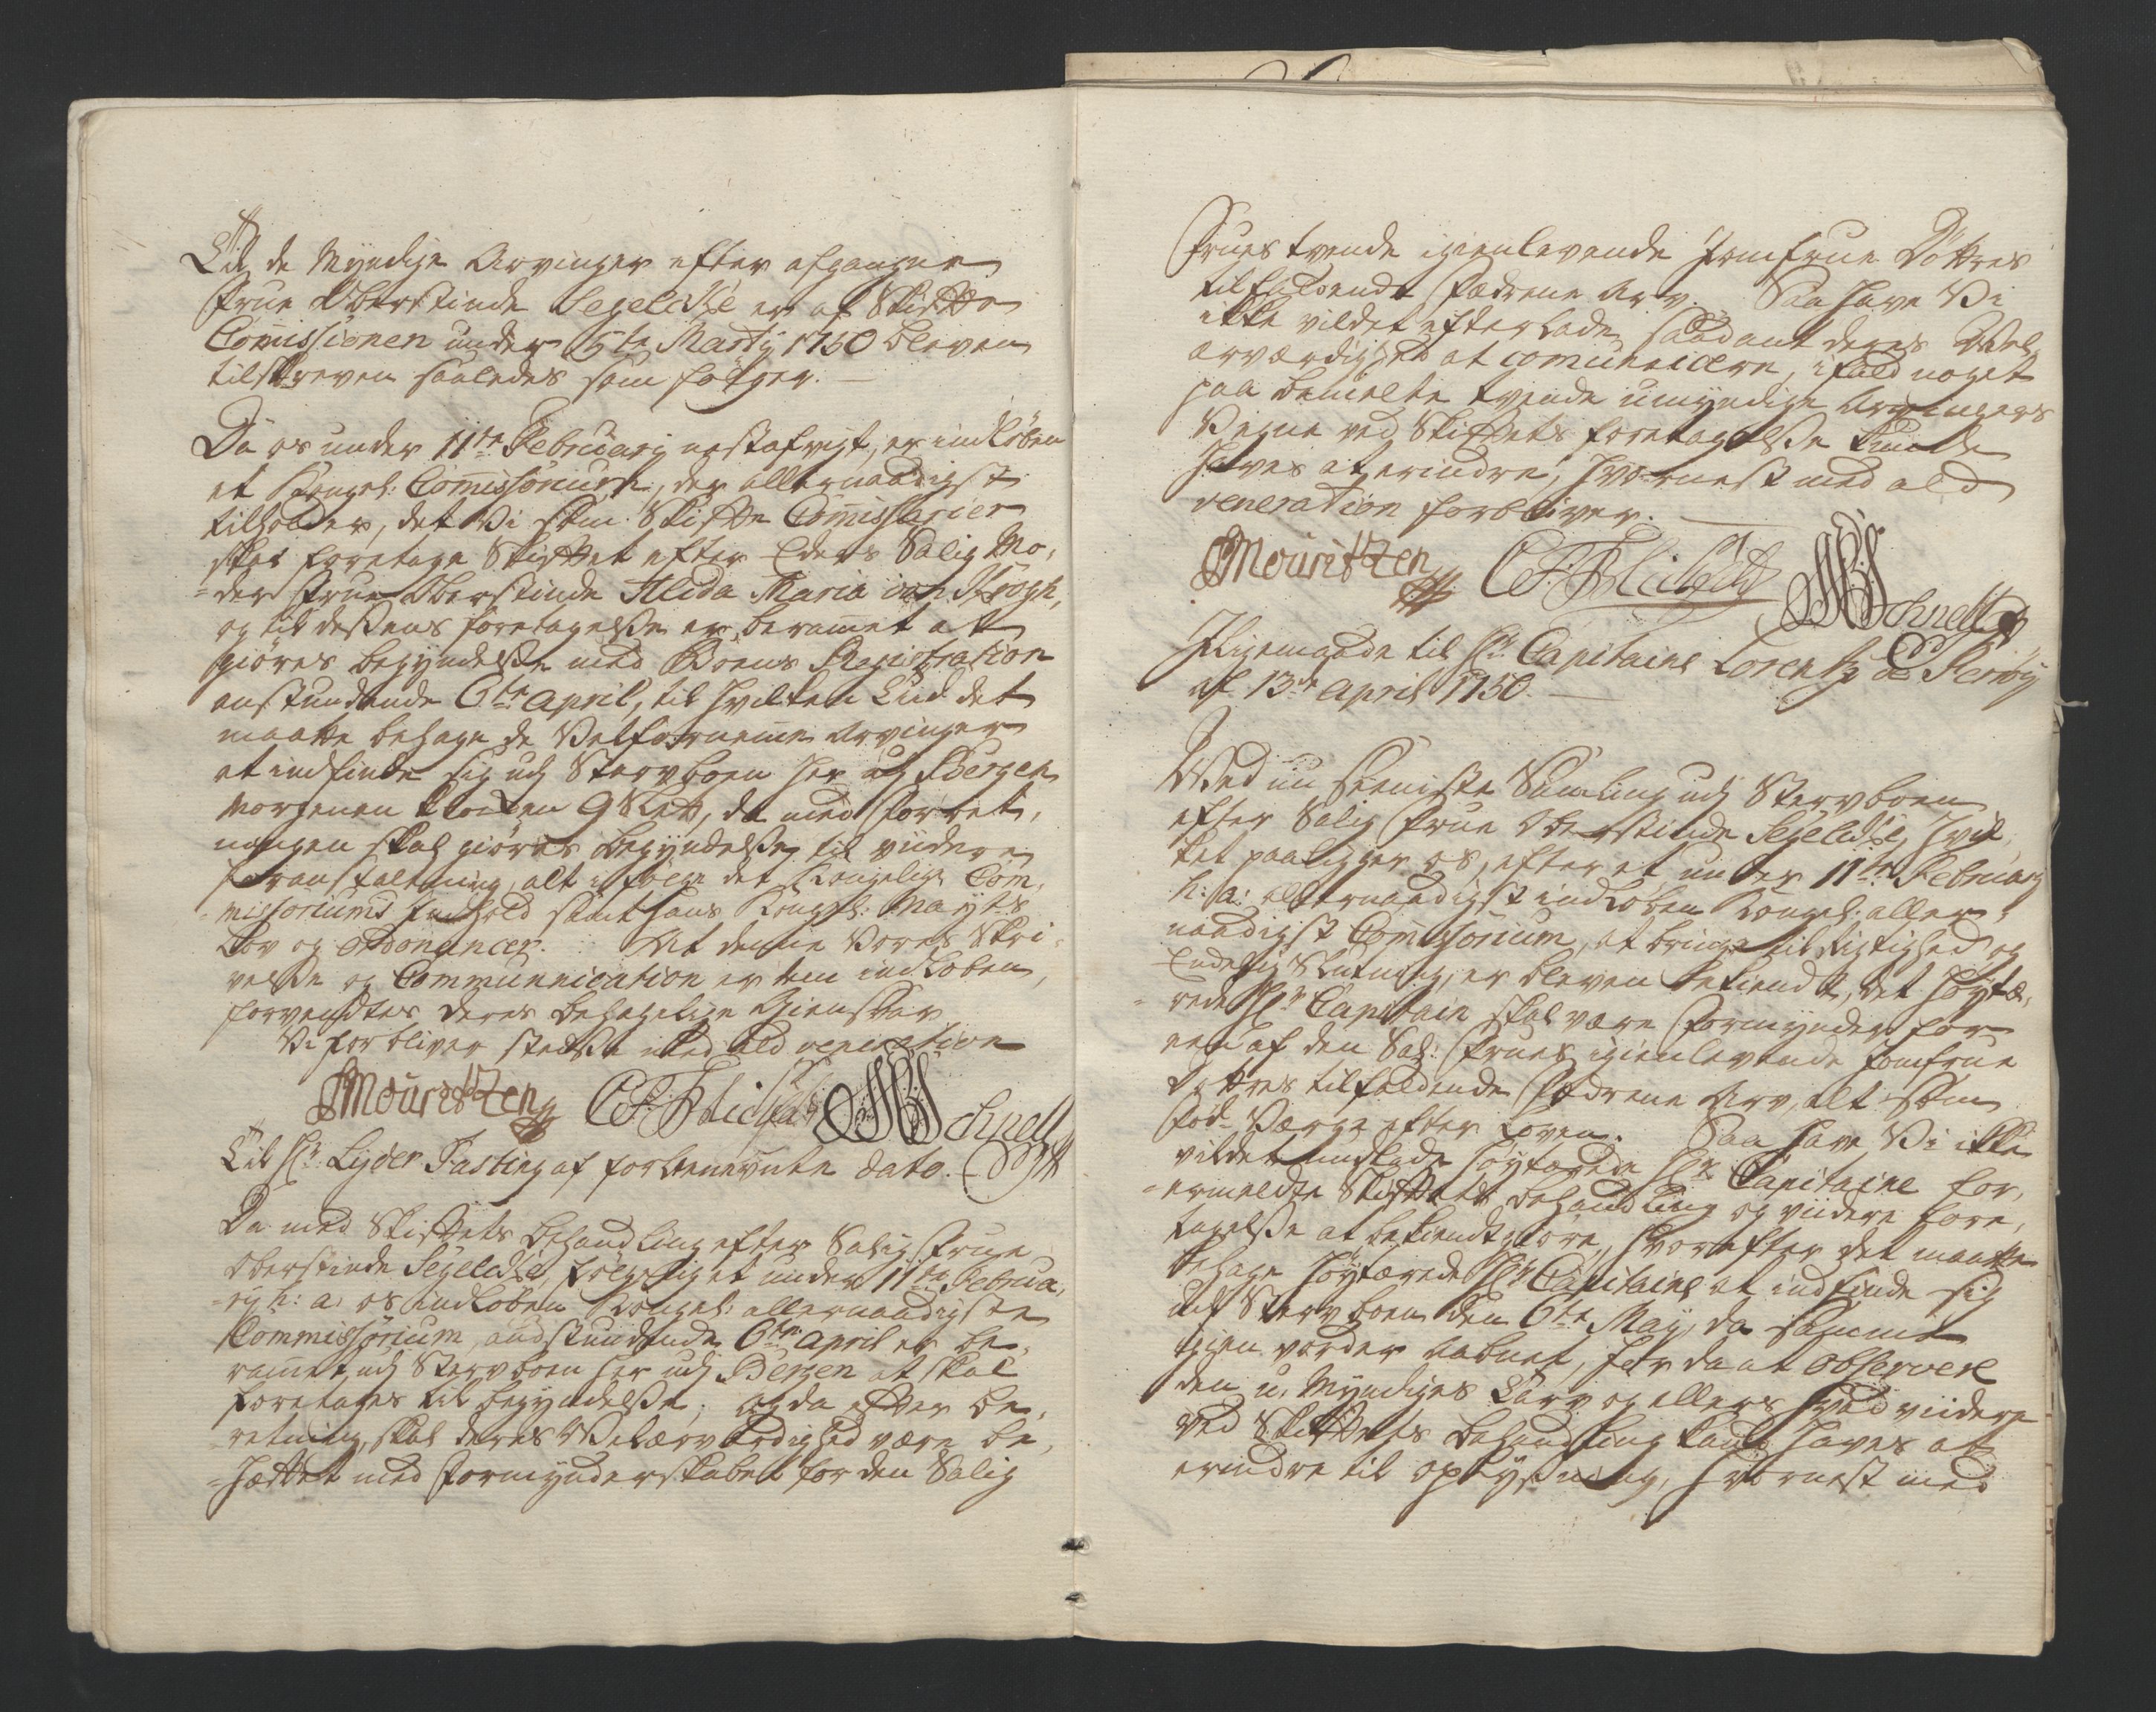 Til de Myndige Arvinger efter afgangne
Frue Oberstinde Segelcke er af Skifte
Commissionen under 5te Martij 1750 bleven
tilskreven saaledes som følger.
Da os under 11te Februarij nestafvigt, er indløben
et Kongel: Commissorium, der allernaadigst
tilholder, det Vi som Skifte Commissarier
skal foretage Skiftet efter Eders Salig Mo,
=der Frue Oberstinde Alida Maria von Krogh,
og til dessens foretagelse er beramet at
giøres begyndelse med Boens Registration
anstundende 6te April, til hvilken Tiid det
maatte behage de Velfornemme Arvinger
at indfinde sig udj Stervboen her udj Bergen
Morgenen Klocken 9 Slet, da med Forret,
ningen skal giøres begyndelse til viidere
foranstaltning, alt ifølge det Kongelige Com,
=missoriums Indhold samt hans Kongel: Mayts
Lov og ordonancer. At denne Vores Skri,
velse og Communication er dem indløben,
forventes deres behagelige Giensvar
Vi forbliver stedse med ald veneration
JMouritzen CF: Blichfeldt Schnell
Til Hr: Lyder Fasting af forbenevnte dato.
Da med Skiftets behandling efter Salig Frue
Oberstinde Segelcke, følgelig et under 11te Februa,
=rij h: a: os indløben Kongel: allernaadigste
Commissorium, anstundende 6te April er be,
rammet udj Stervboen her udj Bergen at skal
foretages til begyndelse, og da efter be,
=retning, skal deres Velærværdighed være be,
=hæftet med Formynderskabet for den Salig
Frues tvende igienlevende Jomfrue Døttres
tilfaldende Fædrene Arv. Saa have Vi
ikke vildet efterlade saadant deres Vel,
ærværdighed at comunicere, ifald noget
paa bemelte tvende umyndige Arvingers
Vegne ved Skiftets foretagelse kunde
haves at erindre, hvornest med ald
veneration forbliver.
JMouritzen CF: Blichfeldt Schnell
Iligemaade til Hr: Capitaine Lorentz de Feroÿ
af 13de April 1750.
Ved nu seeniste Samling udj Stervboen
efter Salig Frue Oberstinde Segelcke, hvil,
ket paaligger os, efter et under 11te Februarij
h: a: allernaadigst indløben Kongel: aller,
naadigst Commissorium, at bringe til Rigtighed og
Endelig Slutning, er bleven bekiendt, det høytæ,
rede Hr: Capitain skal være Formynder for
een af den Sal: Frues igienlevende Jomfrue
Døttres tilfaldende Fædrene Arv, alt som
fød Værge efter Loven. Saa have Vi ikke
vildet undlade høytærede Hr: Capitaine for,
=ermeldte Skiftets behandling og viidere fore,
tagelse at bekiendtgiøre, hvorefter det maatte
behage høytærede Hr: Capitaine at indfinde sig
udj Stervboen den 6te Maij, da samme
igien vorder aabnet, for da at observere
den u, Myndiges Tarv og ellers hvad viidere
ved Skiftets behandling kand haves at
erindre til oplysning, hvornest med